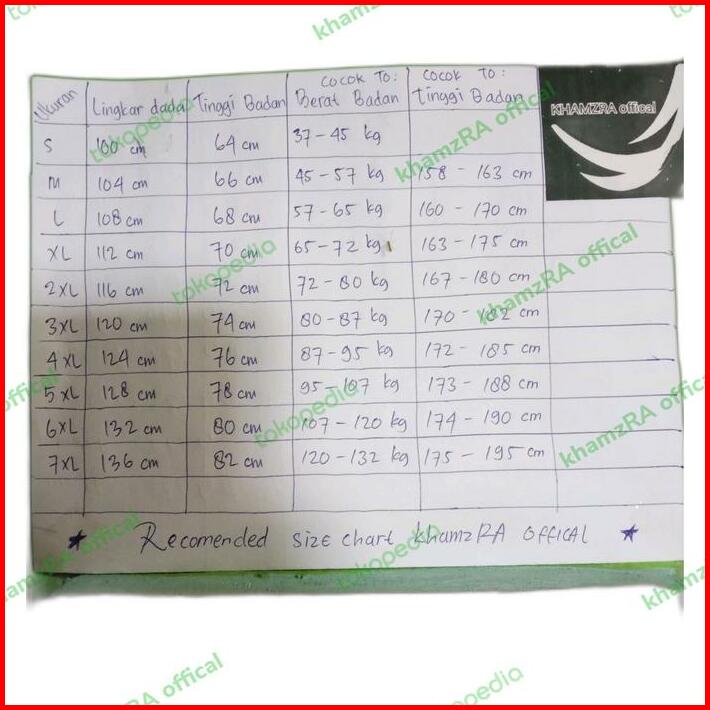 Ukuran Lingkar dada Tinggi Badan COCOK TO: Berat Badan COCOK TO: Tinggi Badan
KHAMZRA offical
S 100 cm 64 cm 37 - 45 kg
M 104 cm 66 cm 45 - 57 kg 158 - 163 cm
L 108 cm 68 cm 57 - 65 kg 160 - 170 cm
XL 112 cm 70 cm 65 - 72 kg 163 - 175 cm
2XL 116 cm 72 cm 72 - 80 kg 167 - 180 cm
3XL 120 cm 74 cm 80 - 87 kg 170 - 182 cm
4XL 124 cm 76 cm 87 - 95 kg 172 - 185 cm
5XL 128 cm 78 cm 95 - 107 kg 173 - 188 cm
6XL 132 cm 80 cm 107 - 120 kg 174 - 190 cm
7XL 136 cm 82 cm 120 - 132 kg 175 - 195 cm
Recomended SIZE chart khamzRA OFFICAL
tokopedia
khamzRA offical
tokopedia
khamzRA offical
tokopedia
khamzRA offical
tokopedia